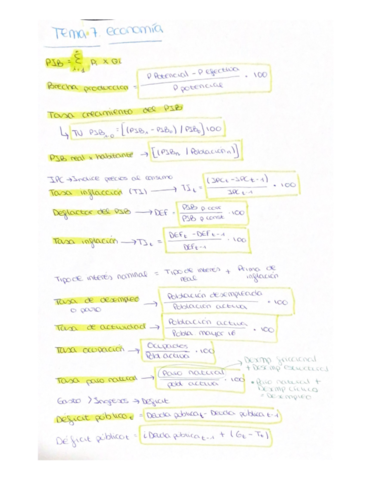 TEMA 7. Economía
PIB = Σ Pi x Qi
Brecha producción = P Potencial - P efectiva / P potencial · 100
Tasa crecimiento del PIB
↳ TV PIB = [(PIB₁ - PIB₀) / PIB₀] 100
PIB real x habitante → [(PIBn / Población n)]
IPC → Índice precios de consumo
Tasa inflacción (TI) → TIt = (IPCt - IPCt-1) / IPCt-1 · 100
Deflactor del PIB → DEF = PIB p corr / PIB p const · 100
Tasa inflación → TIt = DEFt - DEFt-1 / DEFt-1 · 100
Tipo de interés nominal = Tipo de interés real + Prima de inflación
Tasa de desempleo o paro → Población desempleada / Población activa · 100
Tasa de actividad → Población activa / Pobla mayor 16 · 100
Tasa ocupación → Ocupados / Pobl activa · 100
Desemp friccional + Desemp estructural
Tasa paro natural → Paro natural / pobl activa · 100
Paro natural + Desemp cíclico = Desempleo
Gasto > Ingresos → Déficit
Déficit público t = Deuda pública t - Deuda pública t-1
Déficit público t = i Deuda pública t-1 + (Gt - Tt)